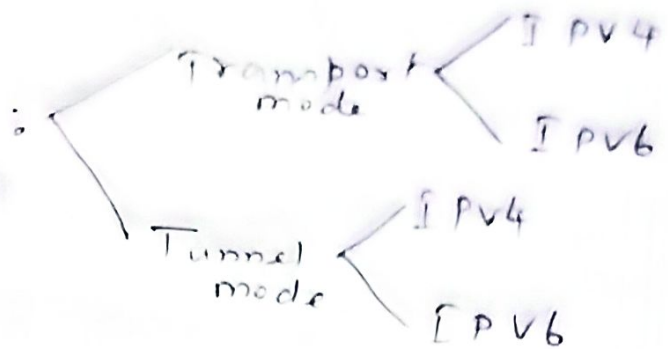 :
Transport
mode
IPV4
IPV6
Tunnel
mode
IPV4
IPV6